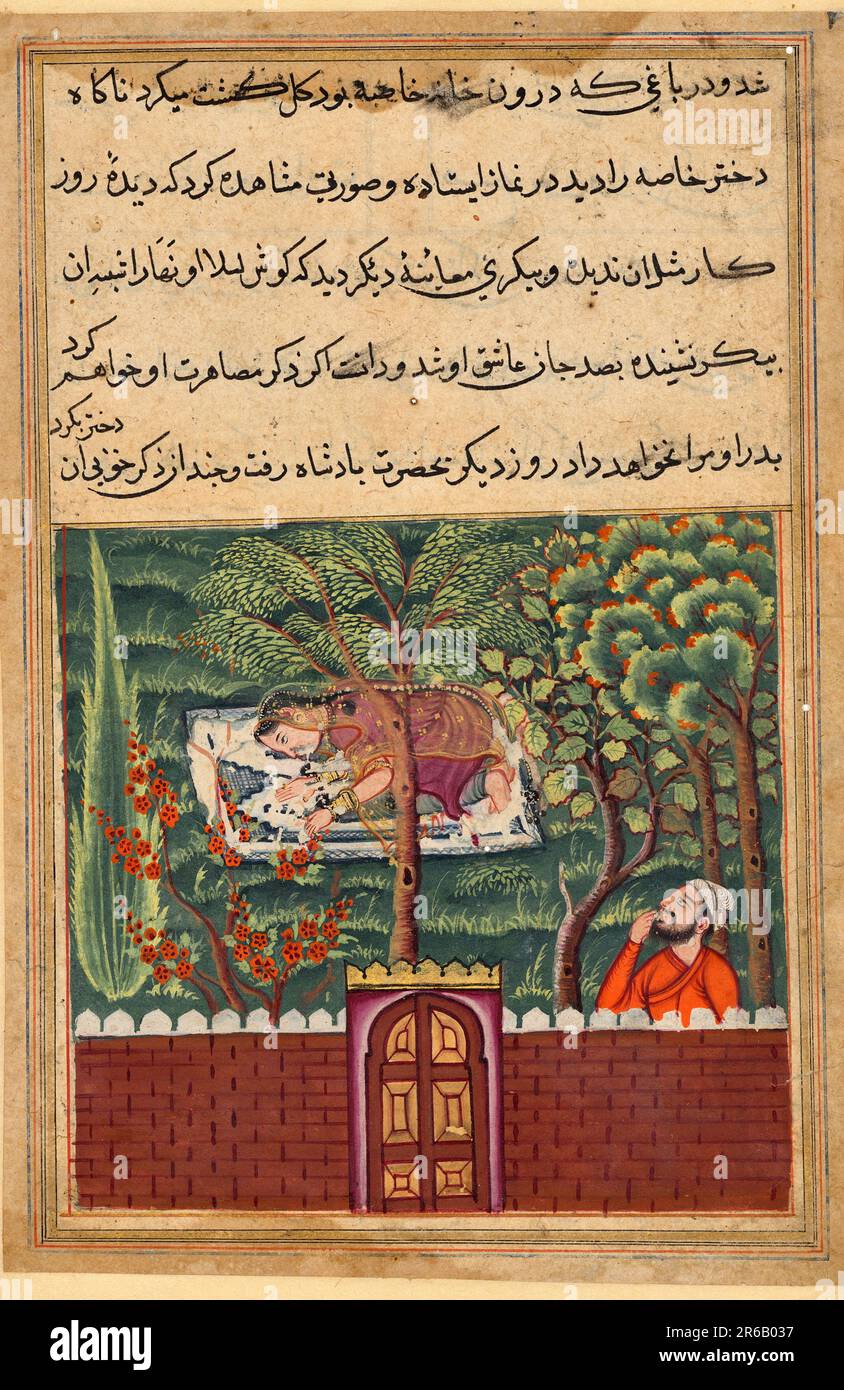 شد و در باغی که درون خانه خاصه بود کل کشت میکرد ناکاه
دختر خاصه را دید در نماز ایستاده و صورتی مشاهده کرد که دیدهٔ روز
کار مثل ان ندیدن و پیکری معاینهٔ دیکر دید که کوش لیلا او نهارا شبیه ان
پیکر نشینده بصد جان عاشق او شد و دانت اکر ذکر مصاهرت او خواهم کرد
پدر او مرا نخواهد داد روز دیکر بحضرت بادشاه رفت و چند از ذکر خوبی ان
دختر بکرد
alamy
alamy
Image ID: 2R6B037
www.alamy.com